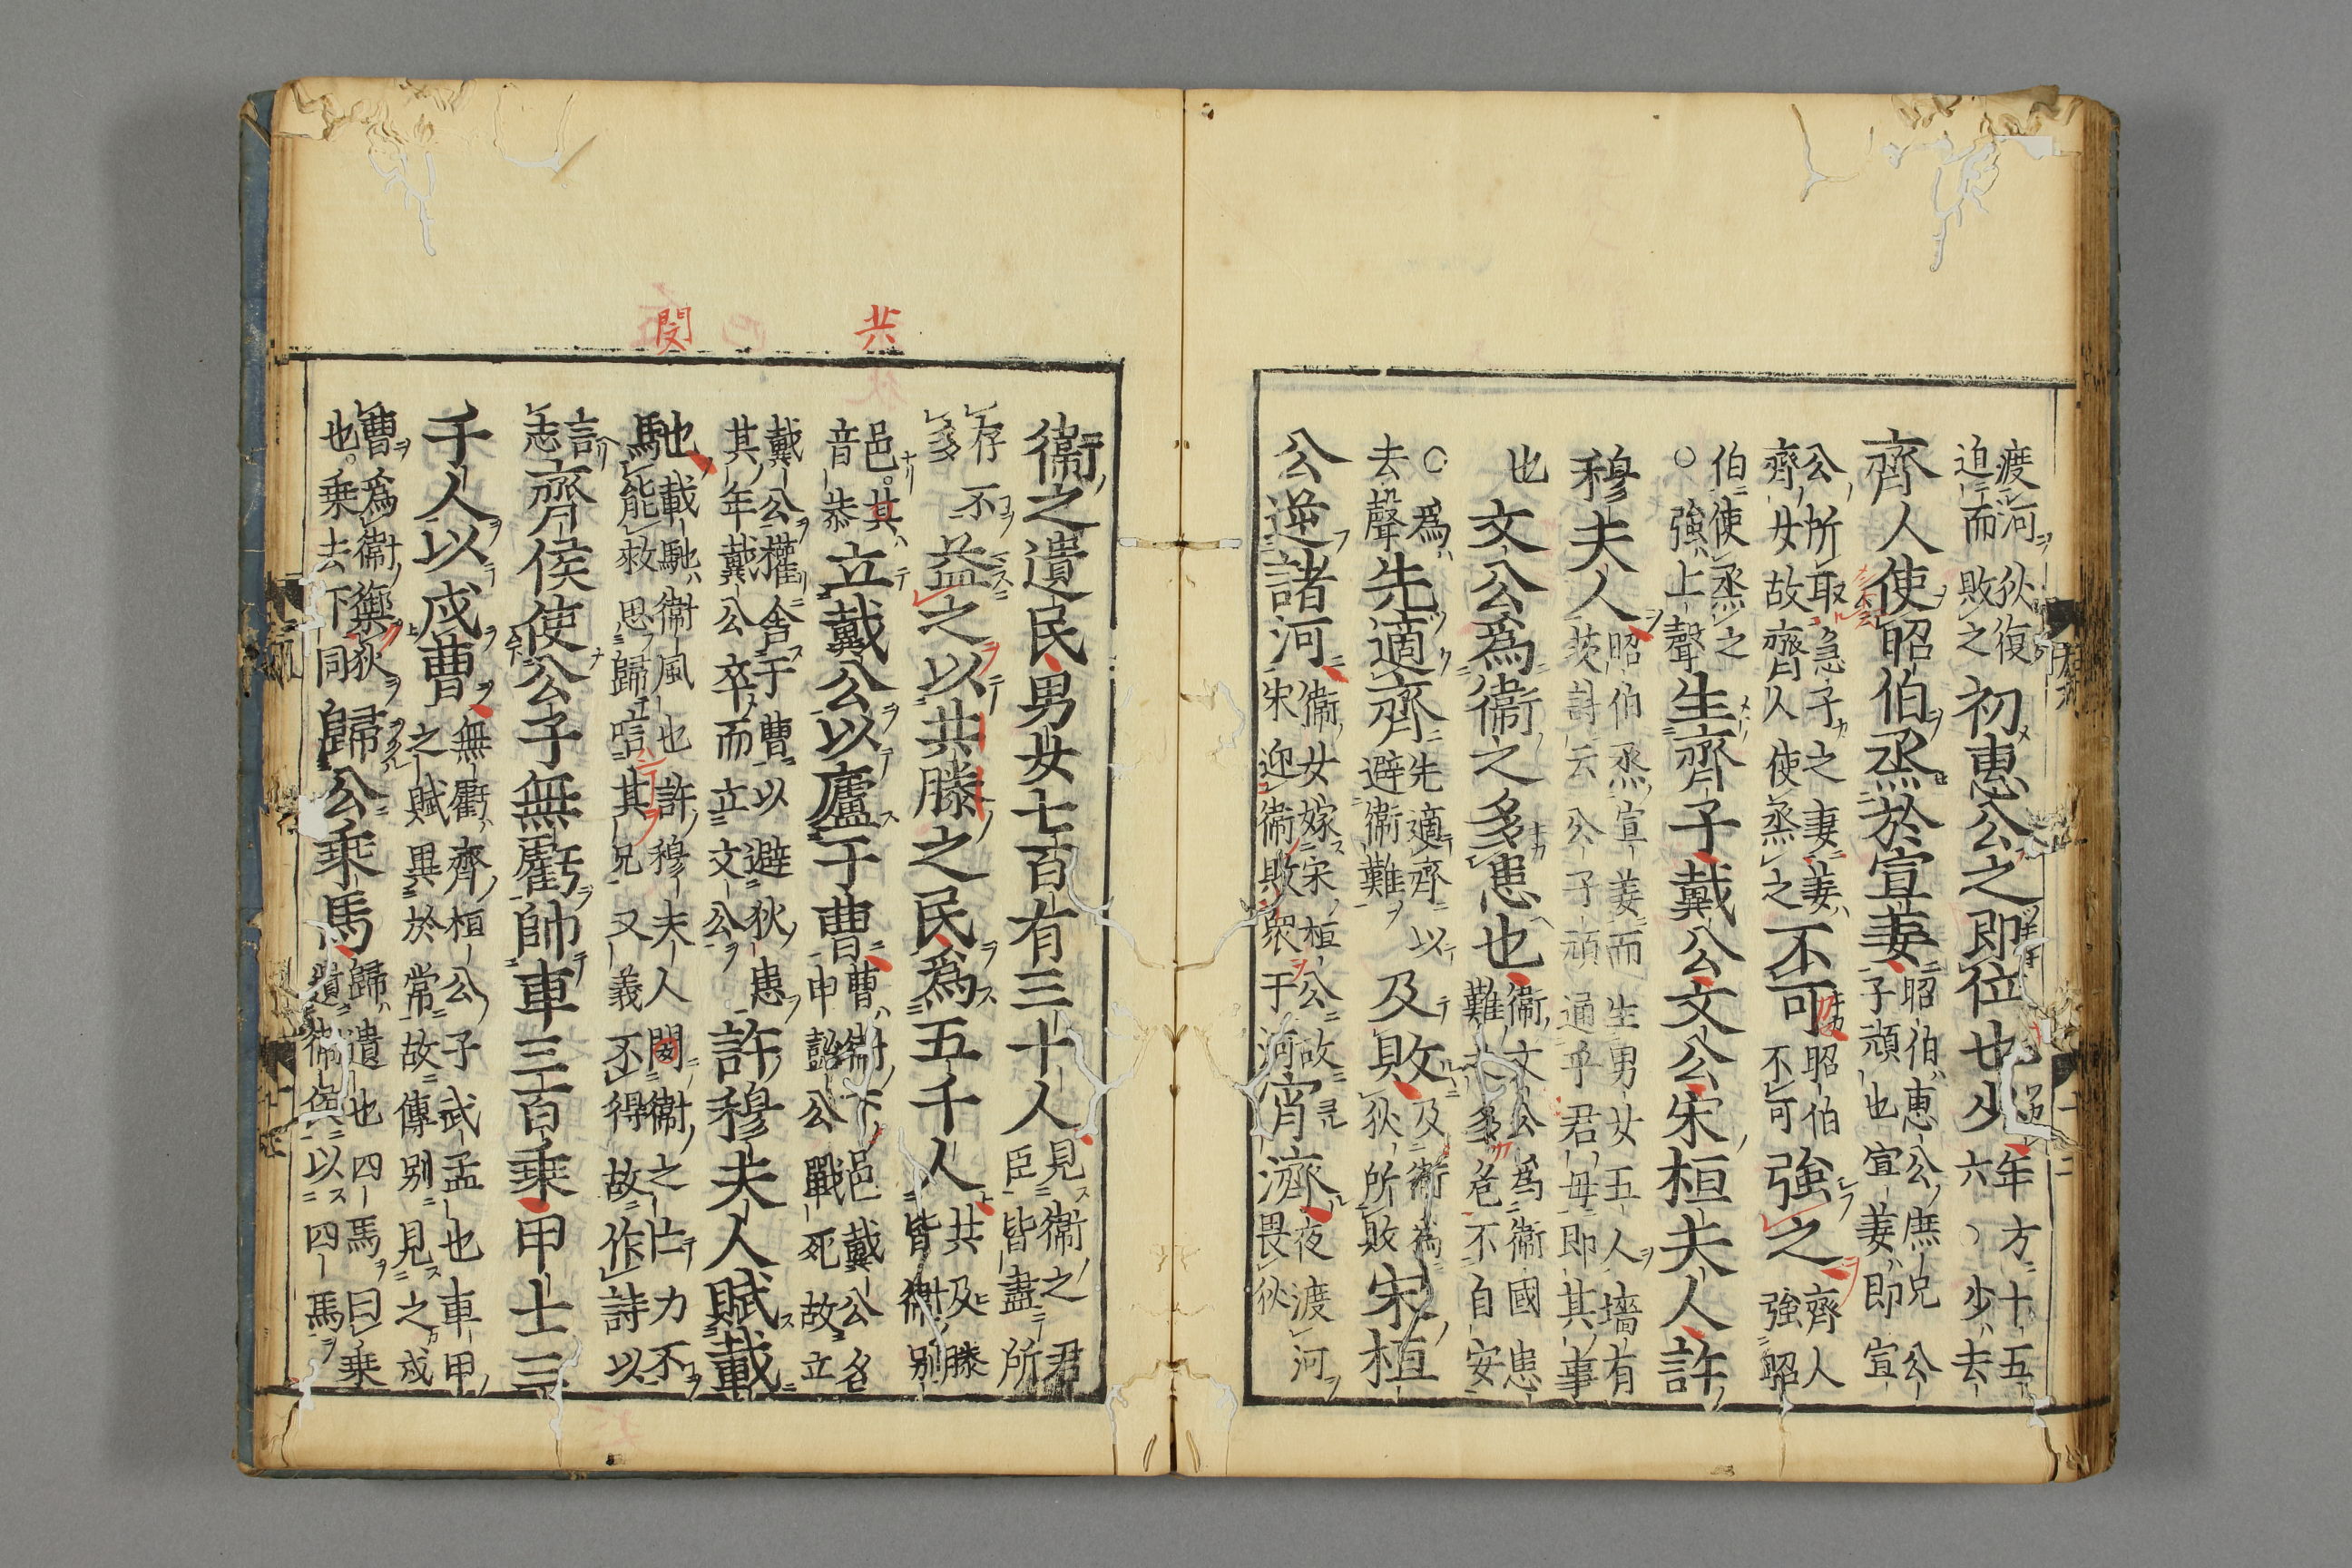 渡河狄復
迫而敗之
初惠公之即位也少
年方十五
六少去
齊人使昭伯烝於宣姜
昭伯惠公庶兄公
子頑也宣姜即宣
公所取急子之妻姜
齊女故齊人使烝之
不可
昭伯
不可
強之
齊人
強昭
伯使烝之
○強上聲
生齊子戴公文公宋桓夫人許
穆夫人
昭伯烝宣姜而生男女五人墻有
茨詩云公子頑通乎君母即其事
也
文公爲衛之多患也
衛文公爲衛國患
難太多危不自安
○爲
去聲
先適齊
先適齊以
避衛難
及敗
及衛爲
狄所敗
宋桓
公逆諸河
衛女嫁宋桓公故
宋迎衛敗衆于河
宵濟
夜渡河
畏狄
共
閔
衛之遺民男女七百有三十人
見衛之君
臣皆盡所
存不
多
益之以共滕之民爲五千人
共及滕
皆衛別
邑其
音恭
立戴公以廬于曹
曹衛下邑戴公名
申懿公戰死故立
戴公權舍于曹以避狄患
其年戴公卒而立文公
許穆夫人賦載
馳
載馳衛風也許穆夫人閔衛之亡力不
馳能救思歸唁其兄又義不得故作詩以
言
志
齊侯使公子無虧帥車三百乘甲士三
千人以戍曹
無虧齊桓公子武孟也車甲
之賦異於常故傳別見之戍
曹爲衛禦狄
也乘去下同
歸公乘馬
歸遺也四馬曰乘
遺衛侯以四馬